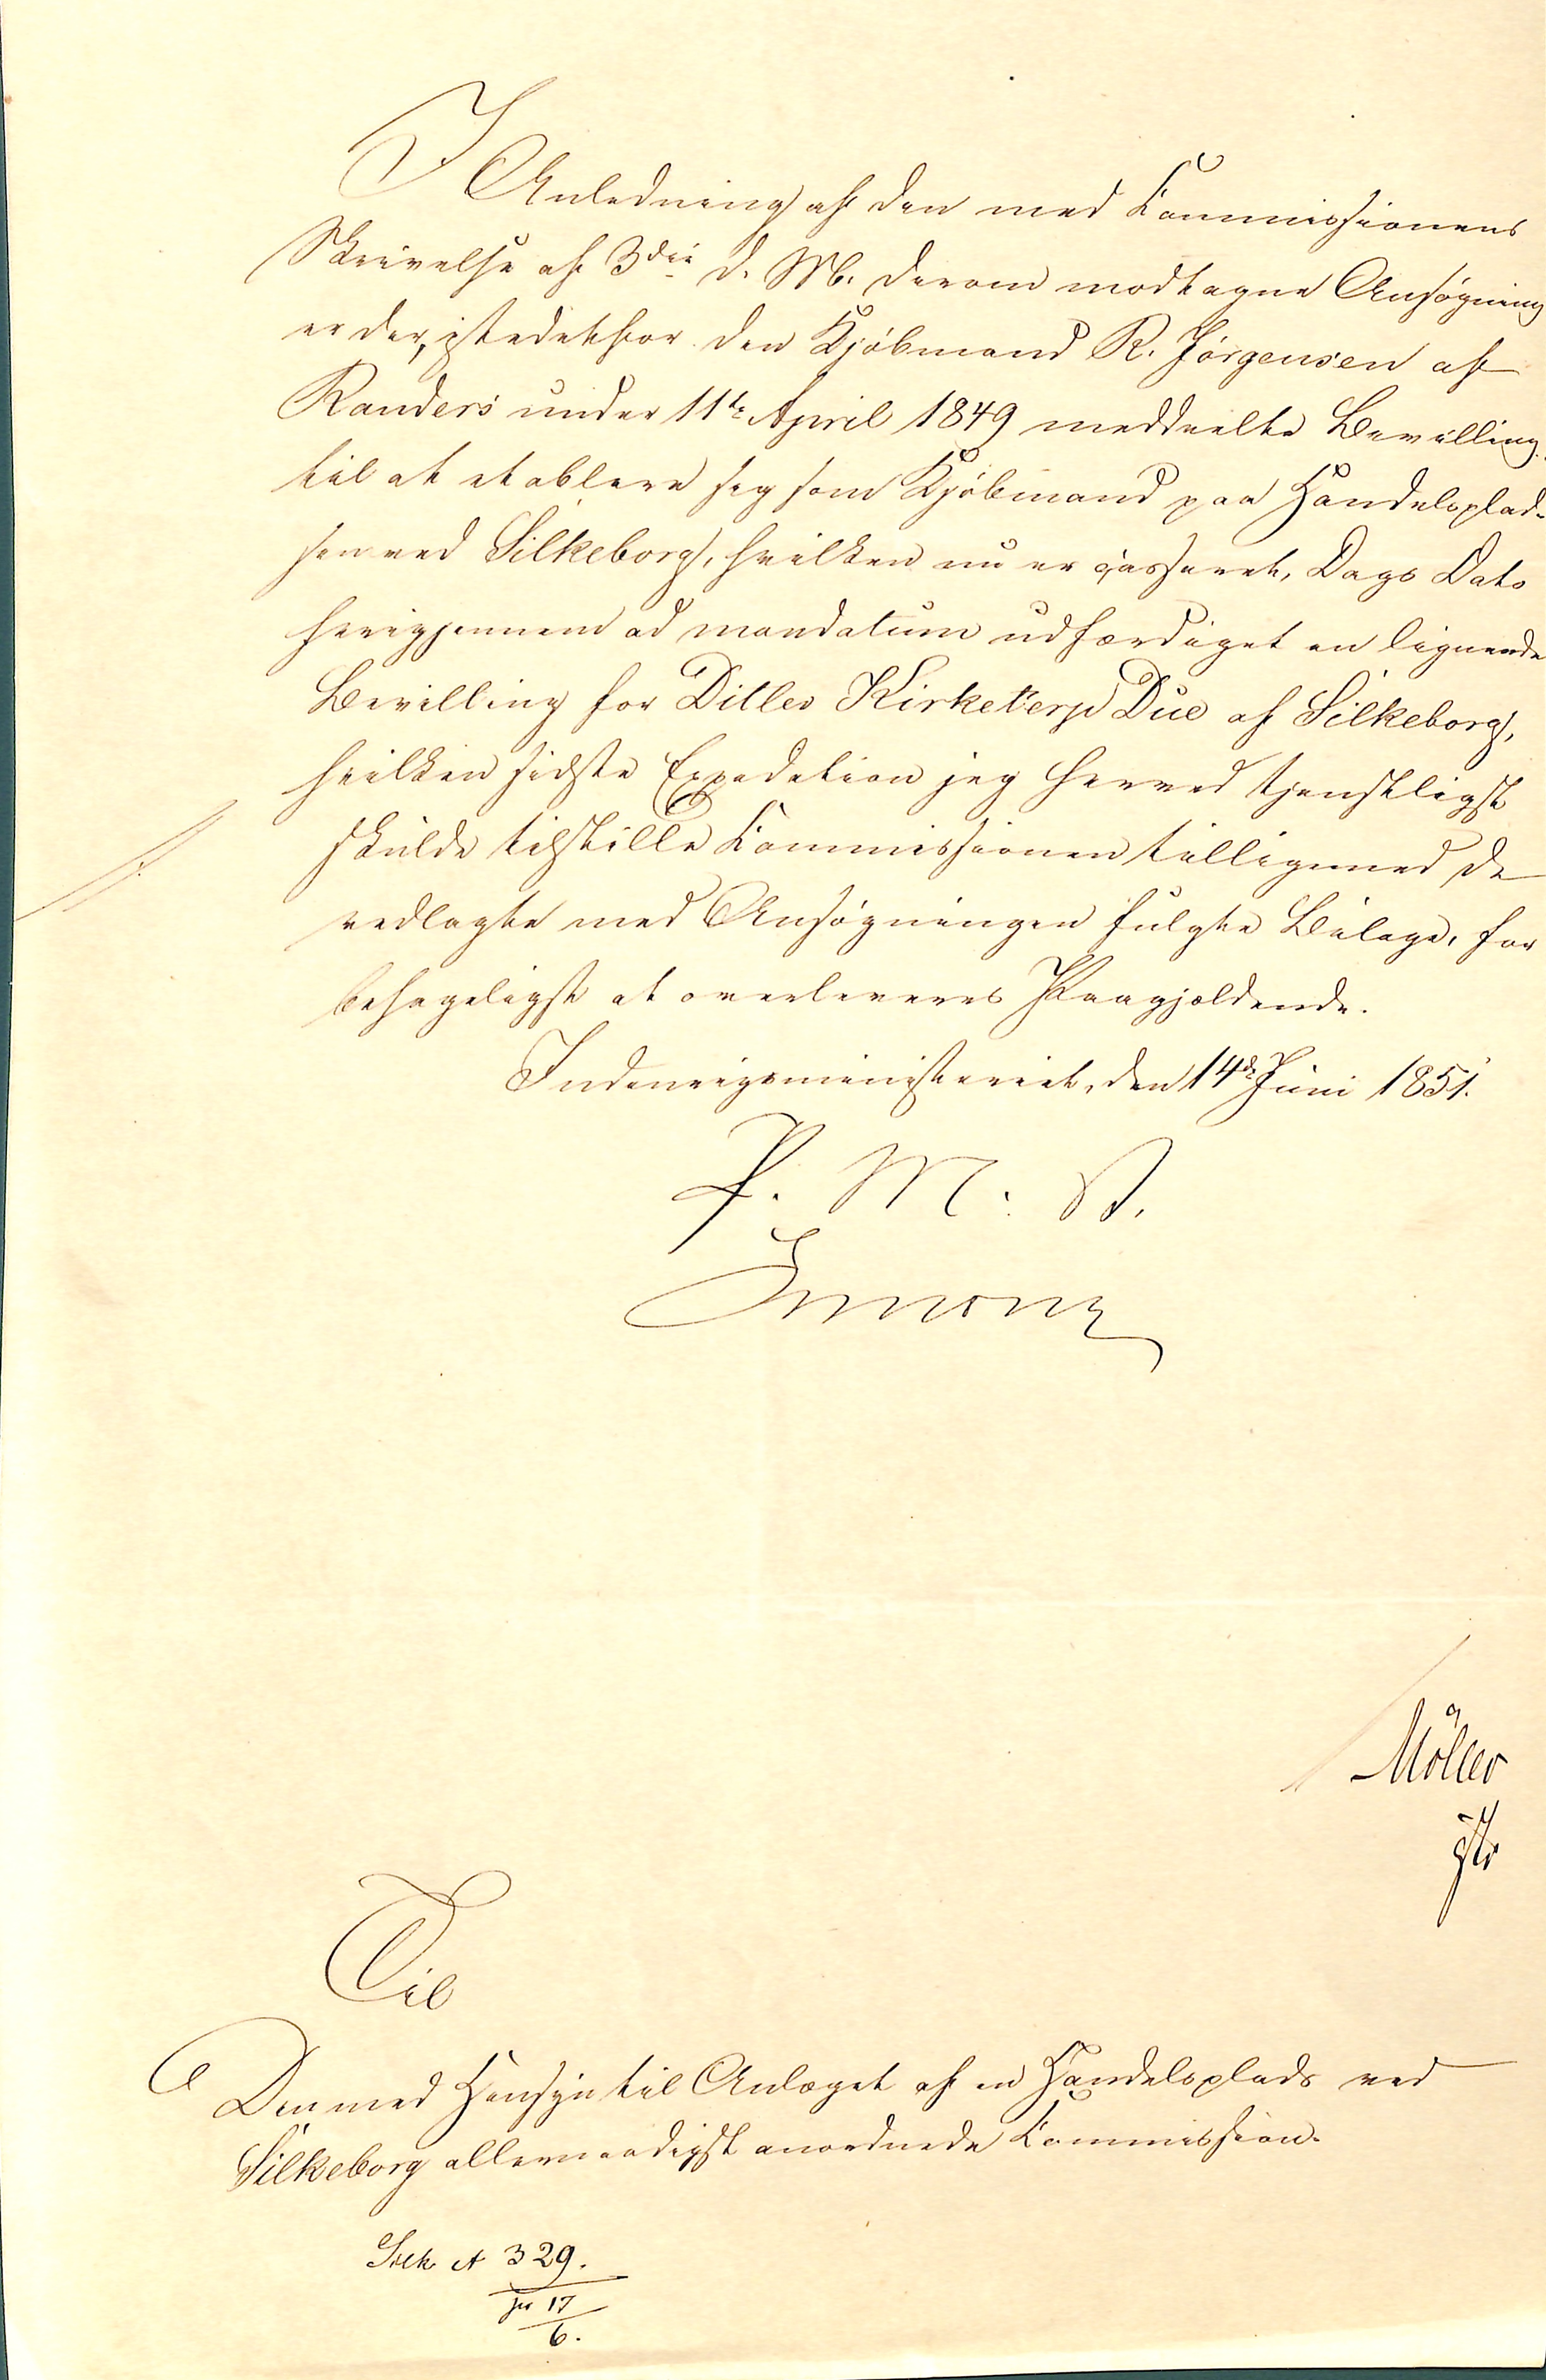 I Anledning af den med Kommissionens
Skrivelse af 3die d. M. derom modtagne Ansøgning
er der, istedetfor den Kjøbmand R. Jørgensen af
Randers under 11te April 1849 meddeelte Bevilling
til at etablere sig som Kjøbmand paa Handelsplad-
sen ved Silkeborg, hvilken nu er casseret, Dags Dato
herigjennem ad mandatum udfærdiget en lignende
Bevilling for Ditlev Kirketerp Due af Silkeborg,
hvilken sidste Expedition jeg herved tjenstligst
skulde tilstille Kommissionen tilligemed de
vedlagte med Ansøgningen fulgte Bilage, for
behageligst at overleveres Paagjældende.
Indenrigsministeriet, den 14de Juni 1851.
F. M. D.
Simony
Møller
Til
Den med Hensyn til Anlæget af en Handelsplads ved
Silkeborg allernaadigst anordnede Kommission.
Silk A 329.
pr 17
6.